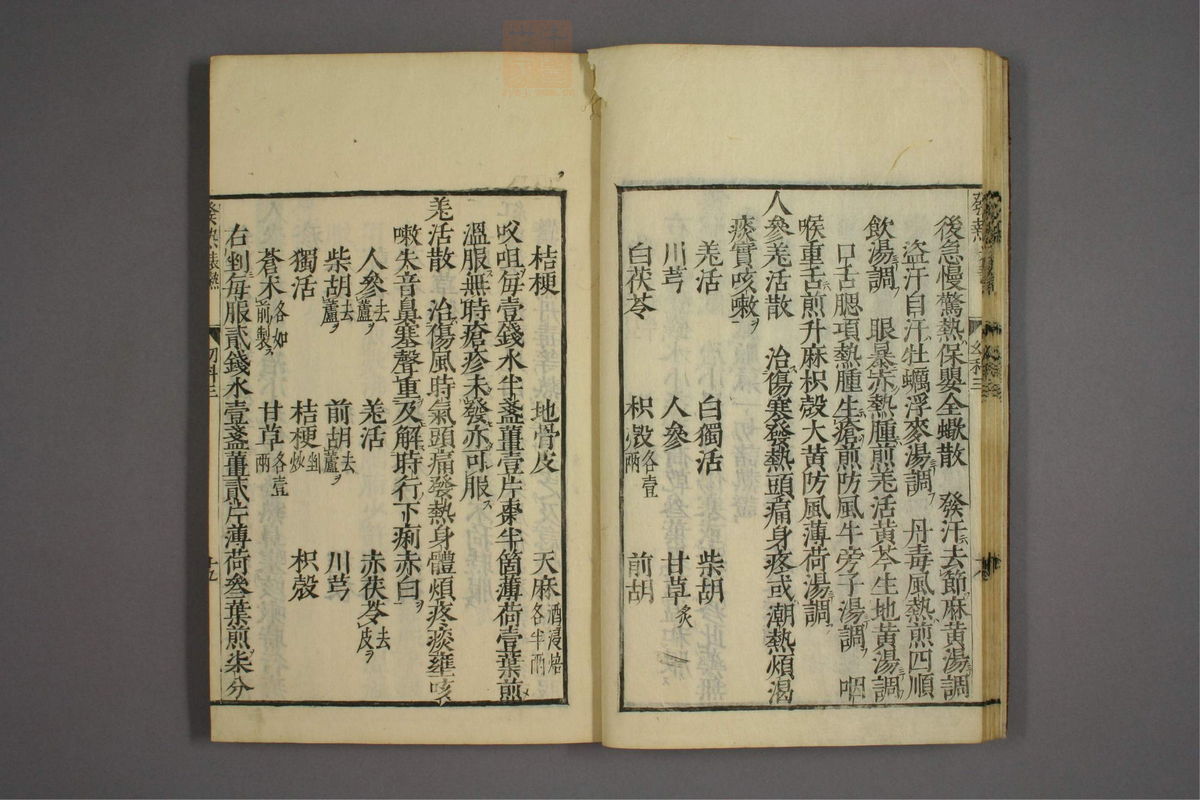 後急慢驚熱保嬰全蠍散　發汗去節麻黄湯調
盗汗自汗牡蠣浮麥湯調フ　丹毒風熱煎四順
飲湯調フ　眼暴赤熱腫煎羗活黄芩生地黄湯調フ
口舌腮項熱腫生瘡煎防風牛旁子湯調フ　咽
喉重舌煎升麻枳殼大黄防風薄荷湯調フ
人參羗活散　治傷寒發熱頭痛身疼或潮熱煩渇
痰實咳嗽ヲ
羗活　白獨活　柴胡
川芎　人參　甘草炙
白茯苓　枳殼各壹兩　前胡
桔梗　地骨皮　天麻酒浸焙各半兩
㕮咀毎壹錢水半盞薑壹片棗半箇薄荷壹葉煎
溫服無時瘡疹未發亦可服ス
羗活散　治傷風時氣頭痛發熱身體煩疼痰壅咳
嗽失音鼻塞聲重及解時行下痢赤白ヲ
人參去蘆ヲ　羗活　赤茯苓去皮ヲ
柴胡去蘆ヲ　前胡去蘆ヲ　川芎
獨活　桔梗剉炒　枳殼
蒼朮各如前製ス　甘草各壹兩
右剉毎服貳錢水壹盞薑貳片薄荷叄葉煎柒分